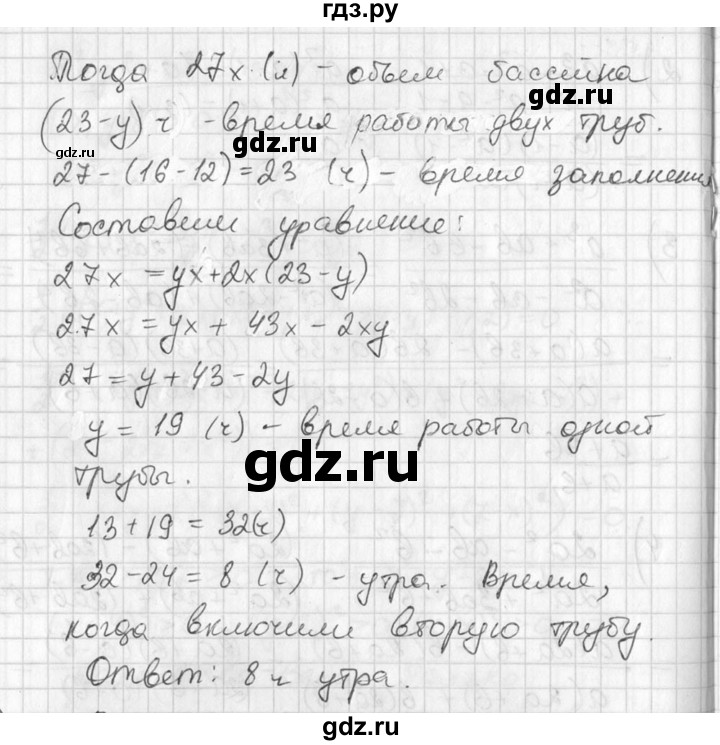 гдз.ру
Тогда 27x (л) - объем бассейна
gdz.ru
(23-y) ч - время работы двух труб.
gdz.ru
27-(16-12)=23 (ч) - время заполнения
Составим уравнение:
27x = yx+2x(23-y)
27x = yx + 43x - 2xy
27 = y+43-2y
y = 19 (ч) - время работы одной
трубы.
gdz.ru
13+19 = 32(ч)
32-24 = 8 (ч) - утра. Время,
когда включили вторую трубу.
Ответ: 8 ч утра.
gdz.ru
gdz.ru